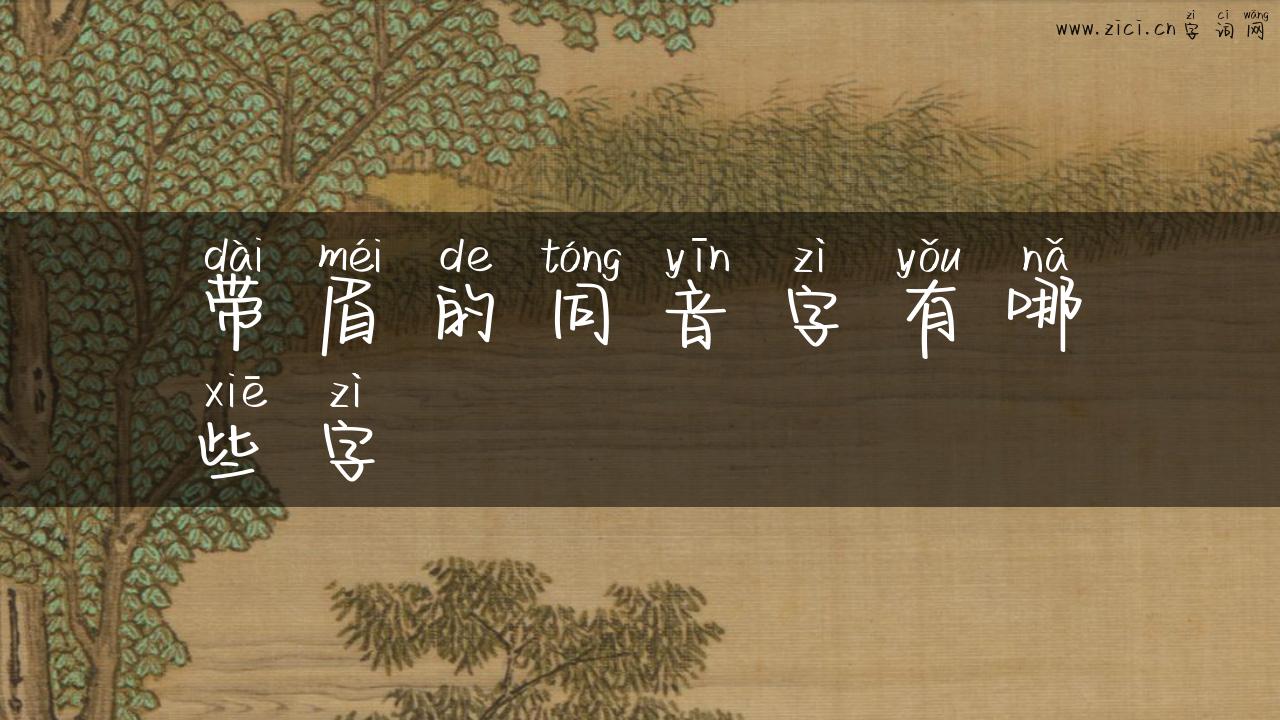 zì cí wǎng
www.zici.cn字词网
dài méi de tóng yīn zì yǒu nǎ
带眉的同音字有哪
xiē zì
些字